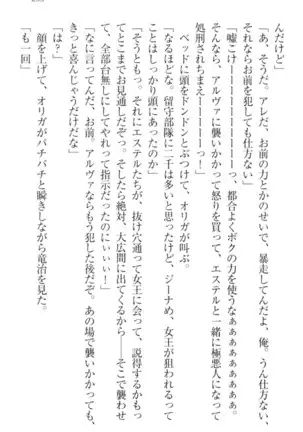 んだけど」
「あ、そうだ。アレだ、お前の力とかのせいで、暴走してんだよ、俺。うん仕方ない、
それならお前を犯しても仕方ない」
「嘘こけーーーーーーーーっ、都合よくボクの力を使うなぁぁぁぁぁぁぁぁぁぁ
そんなら、アルヴァに襲いかかって怒りを買って、エステルと一緒に極悪人になって
処刑されちまえーーーーーっ！」
ベッドに頭をドンドンとぶつけて、オリガが叫ぶ。
「なるほどな。留守部隊に二千は多いと思ったけど、ジーナめ、女王が狙われるって
ことはしっかり頭にあったのか」
「そうともっ。それにエステルたちが、抜け穴通って女王に会って、説得するかもっ
てとこまでお見通しだぞっ。そしたら絶対、大広間に出てくるから――そこで襲わせ
て、全部台無しにしてやれって指示だったのにぃぃぃ！」
「なに言ってんだ、お前。アルヴァならもう犯した後だぞ。あの場で襲いかかっても、
きっと喜んじゃうだけだな」
「は？」
顔を上げて、オリガがパチパチと瞬きしながら竜治を見た。
「も一回」